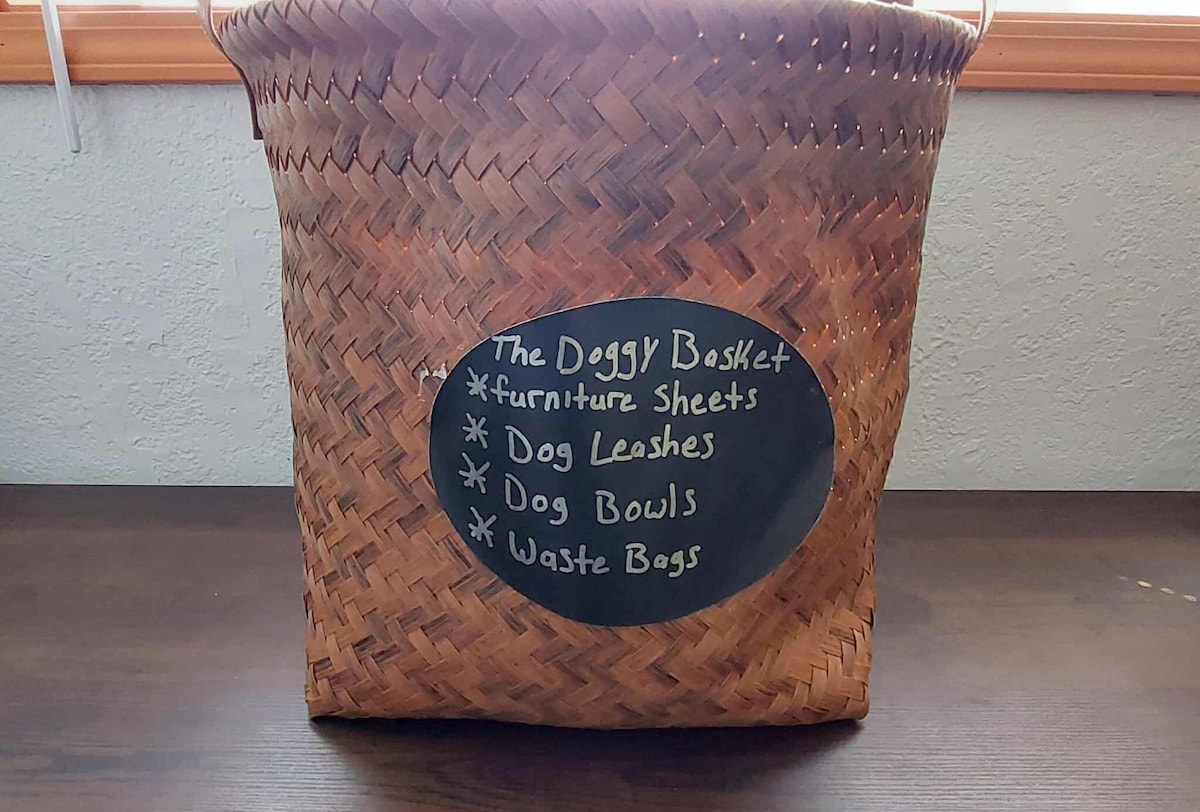 The Doggy Basket
*furniture sheets
* Dog Leashes
* Dog Bowls
* Waste Bags